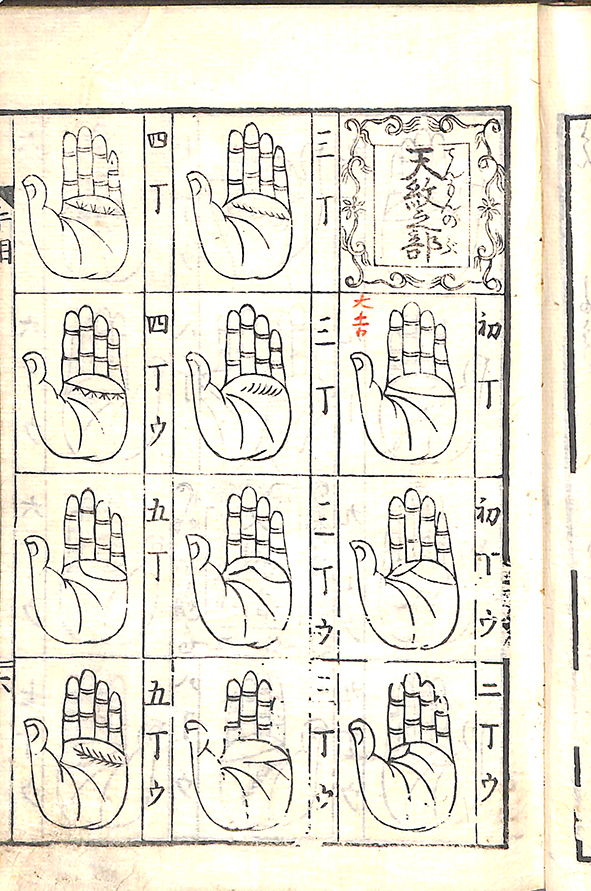 天紋之部
てんもんのぶ
大吉
初丁
初丁ウ
二丁ウ
三丁
三丁
三丁ウ
三丁ウ
四丁
四丁ウ
五丁
五丁ウ